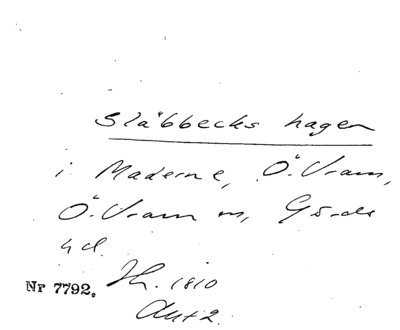 Släbbecks hagen
i Maderne, Ö. Vram,
Ö. Vram sn, Gärds
hd.
Nr 7792. Jh. 1810
Akt 2.